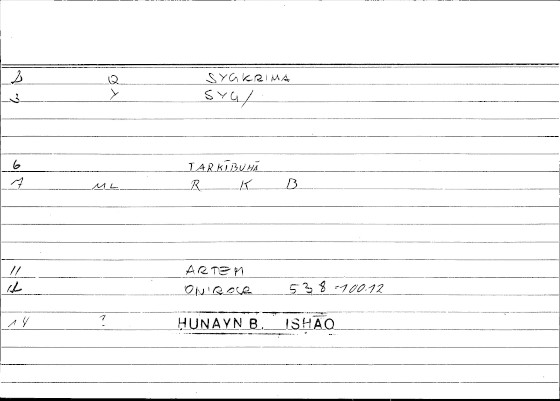 2 Q SYGKRIMA
3 Y SYG/
6 TARKĪBUHĀ
7 ML R K B
11 ARTEM
12 ONIROCR 538-100.12
14 ? HUNAYN B. ISHĀQ